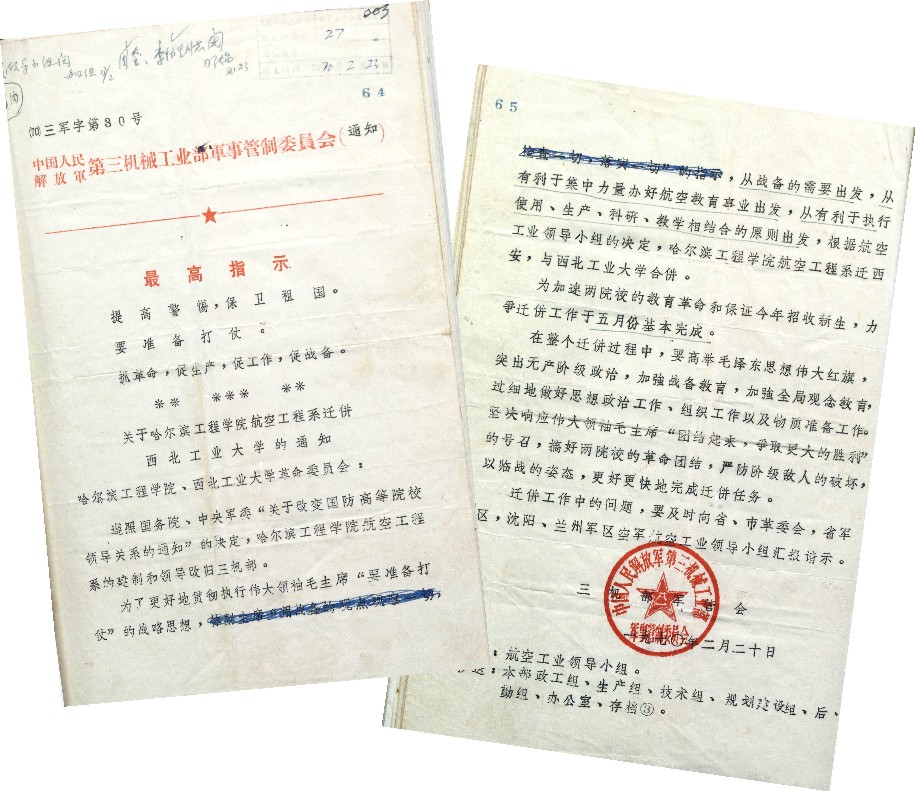 003
27
70 2 23
64
(70)三军字第30号
中国人民解放軍 第三机械工业部軍事管制委員会(通知)
最高指示
提高警惕,保卫祖国。
要准备打仗。
抓革命,促生产,促工作,促战备。
** *** **
关于哈尔滨工程学院航空工程系迁併
西北工业大学的通知
哈尔滨工程学院、西北工业大学革命委员会:
遵照国务院、中央军委“关于改变国防高等院校
领导关系的通知”的决定,哈尔滨工程学院航空工程
系的建制和领导改归三机部。
为了更好地贯彻执行伟大领袖毛主席“要准备打
仗”的战略思想,
65
检查一切,落实一切”的指示,从战备的需要出发,从
有利于集中力量办好航空教育事业出发,从有利于执行
使用、生产、科研、教学相结合的原则出发,根据航空
工业领导小组的决定,哈尔滨工程学院航空工程系迁西
安,与西北工业大学合併。
为加速两院校的教育革命和保证今年招收新生,力
争迁併工作于五月份基本完成。
在整个迁併过程中,要高举毛泽东思想伟大红旗,
突出无产阶级政治,加強战备教育,加強全局观念教育,
过细地做好思想政治工作、组织工作以及物质准备工作。
坚决响应伟大领袖毛主席“团结起来,争取更大的胜利”
的号召,搞好两院校的革命团结,严防阶级敌人的破坏,
以临战的姿态,更好更快地完成迁併任务。
迁併工作中的问题,要及时向省、市革委会,省军
区,沈阳、兰州军区空军航空工业领导小组汇报请示。
中国人民解放军第三机械工业部
军事管制委員会
三机部军管会
一九七〇年二月二十日
:航空工业领导小组。
送:本部政工组、生产组、技术组、规划建设组、后
勤组、办公室、存档③。